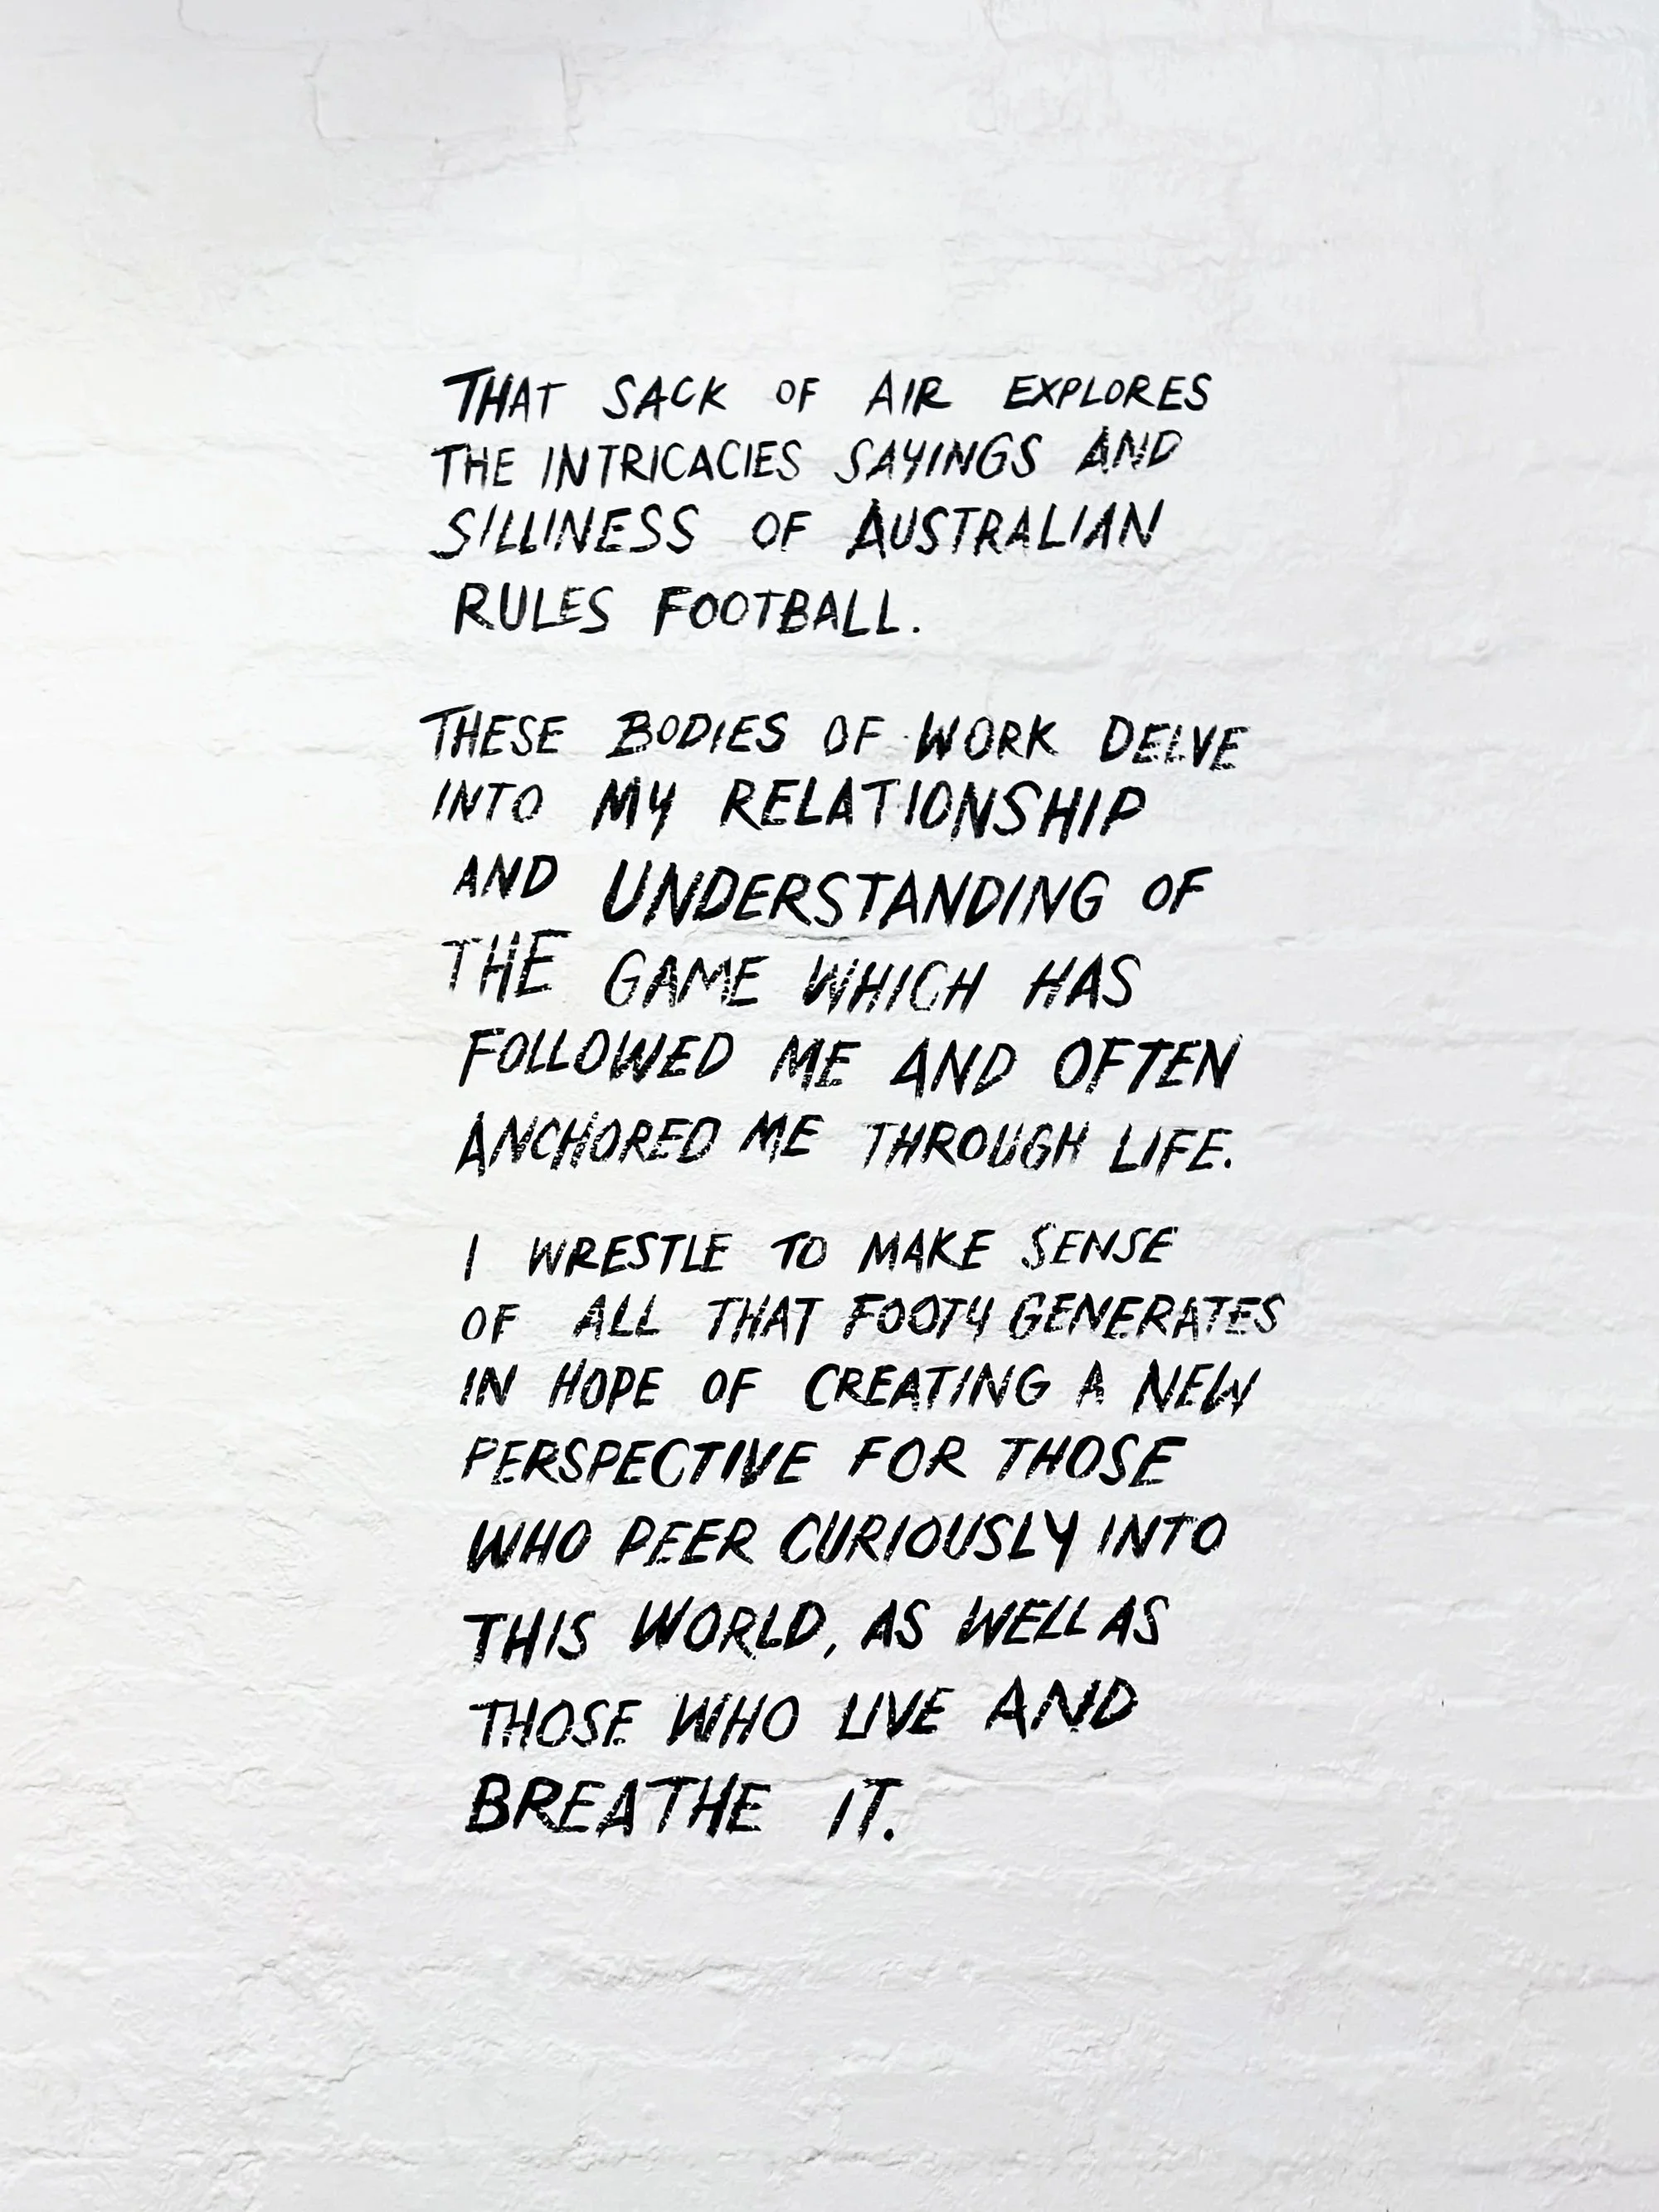 THAT SACK OF AIR EXPLORES
THE INTRICACIES SAYINGS AND
SILLINESS OF AUSTRALIAN
RULES FOOTBALL.
THESE BODIES OF WORK DELVE
INTO MY RELATIONSHIP
AND UNDERSTANDING OF
THE GAME WHICH HAS
FOLLOWED ME AND OFTEN
ANCHORED ME THROUGH LIFE.
I WRESTLE TO MAKE SENSE
OF ALL THAT FOOTY GENERATES
IN HOPE OF CREATING A NEW
PERSPECTIVE FOR THOSE
WHO PEER CURIOUSLY INTO
THIS WORLD, AS WELL AS
THOSE WHO LIVE AND
BREATHE IT.